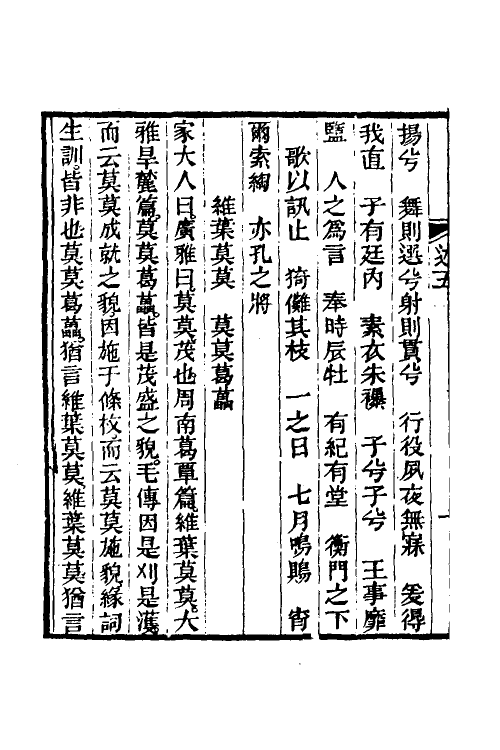 揚兮　舞則選兮射則貫兮　行役夙夜無寐　爰得
我直　子有廷內　素衣朱襮　子兮子兮　王事靡
盬　人之為言　奉時辰牡　有紀有堂　衡門之下
歌以訊止　猗儺其枝　一之日　七月鳴鵙　宵
爾索綯　亦孔之將
維葉莫莫　莫莫葛藟
家大人曰廣雅曰莫莫茂也周南葛覃篇維葉莫莫大
雅旱麓篇莫莫葛藟皆是茂盛之貌毛傳因是刈是濩
而云莫莫成就之貌因施于條枚而云莫莫施貌緣詞
生訓皆非也莫莫葛藟猶言維葉莫莫維葉莫莫猶言
述五